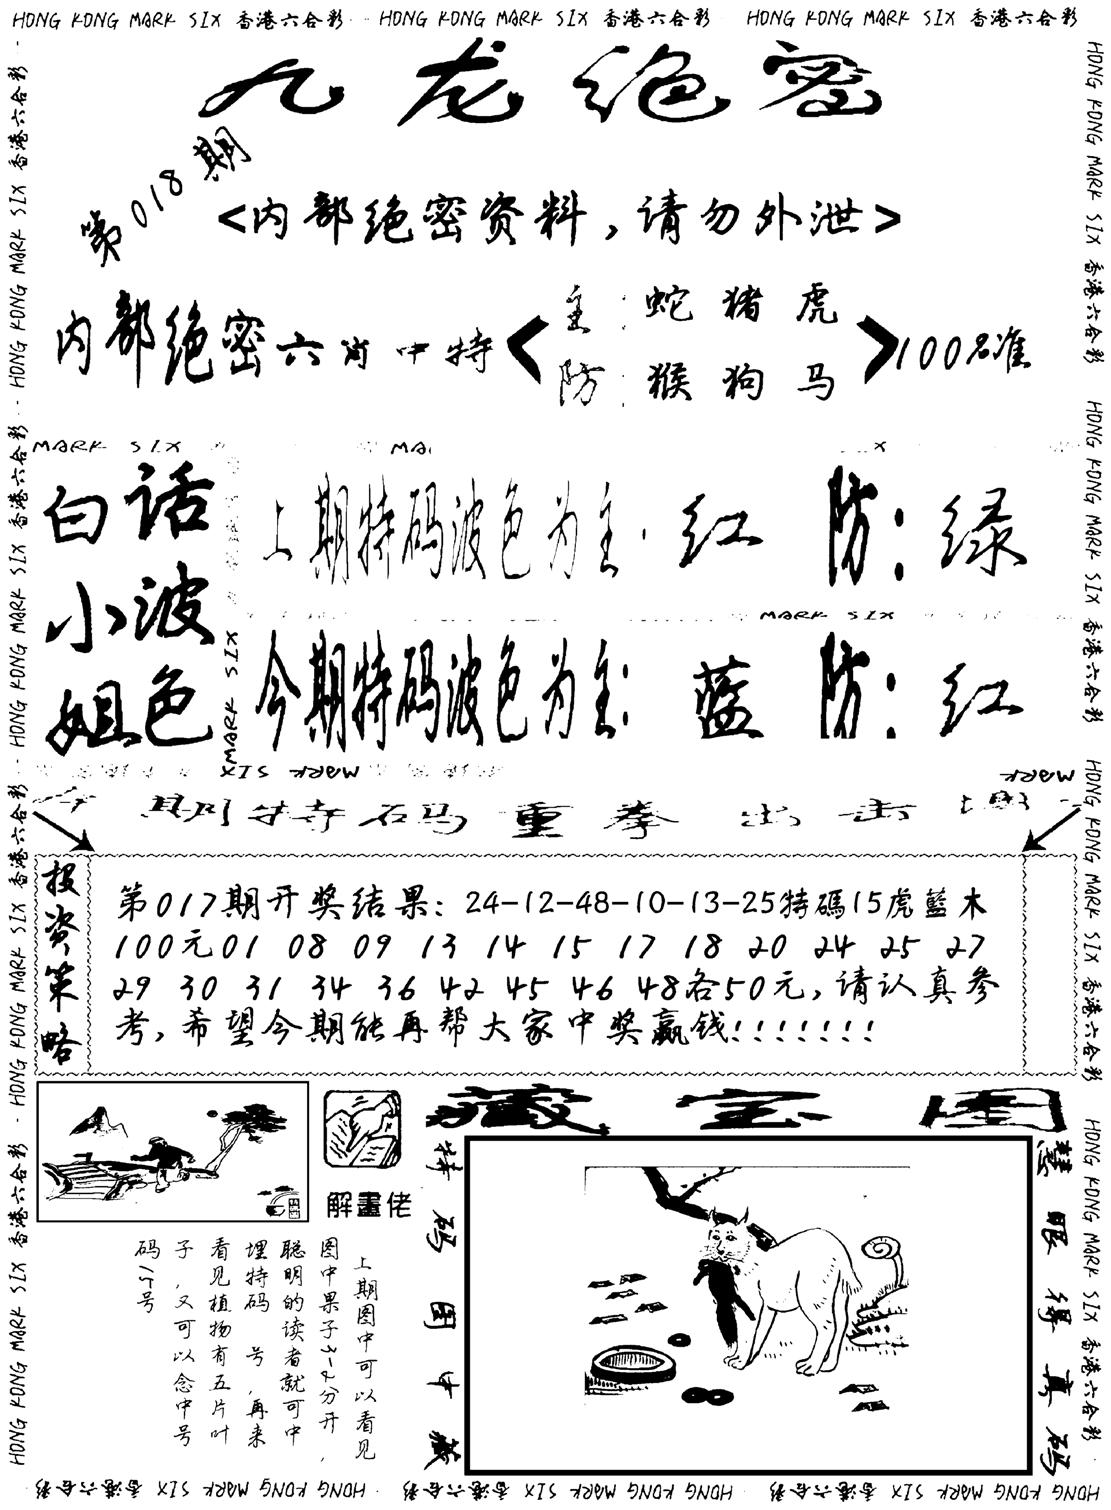 HONG KONG MARK SIX 香港六合彩 HONG KONG MARK SIX 香港六合彩 HONG KONG MARK SIX 香港六合彩
九龙绝密
第018期
<内部绝密资料,请勿外泄>
内部绝密六肖中特
主:蛇猪虎
防:猴狗马
100%准
MARK SIX
白话小波姐色
上期特码波色为主:红 防:绿
MARK SIX
今期特码波色为主:蓝 防:红
MARK SIX
MARK SIX
MARK
今期特码重拳出击
投资策略
第017期开奖结果:24-12-48-10-13-25特碼15虎藍木
100元01 08 09 13 14 15 17 18 20 24 25 27
29 30 31 34 36 42 45 46 48各50元,请认真参
考,希望今期能再帮大家中奖赢钱!!!!!!!
解畫佬
上期图中可以看见
图中果子3-2分开,
聪明的读者就可中
埋特码 号,再来
看见植物有五片叶
子,又可以念中号
码15号
藏宝图
特码图中藏
慧眼得真码
HONG KONG MARK SIX 香港六合彩 HONG KONG MARK SIX 香港六合彩 HONG KONG MARK SIX 香港六合彩 HONG KONG MARK SIX 香港六合彩
HONG KONG MARK SIX 香港六合彩 HONG KONG MARK SIX 香港六合彩 HONG KONG MARK SIX 香港六合彩 HONG KONG MARK SIX 香港六合彩
HONG KONG MARK SIX 香港六合彩 HONG KONG MARK SIX 香港六合彩 HONG KONG MARK SIX 香港六合彩